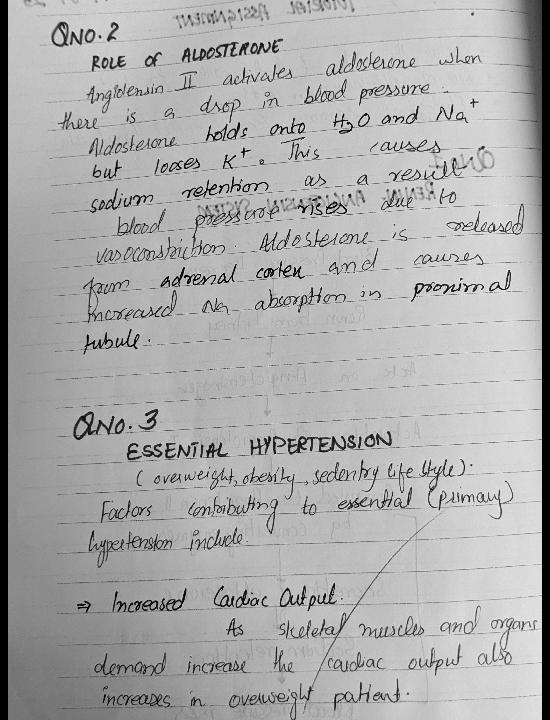 QNO.2
ROLE OF ALDOSTERONE
Angiotensin II activates aldosterone when
there is a drop in blood pressure.
Aldosterone holds onto H2O and Na+
but looses K+. This causes
sodium retention as a result
blood pressure rises due to
vasoconstriction. Aldosterone is released
from adrenal cortex and causes
increased Na absorption in proximal
tubule.
QNO.3
ESSENTIAL HYPERTENSION
(overweight, obesity, sedentry life style).
Factors contributing to essential (primary)
hypertension include.
⇒ Increased Cardiac Output.
As skeletal muscles and organs
demand increase the cardiac output also
increases in overweight patient.